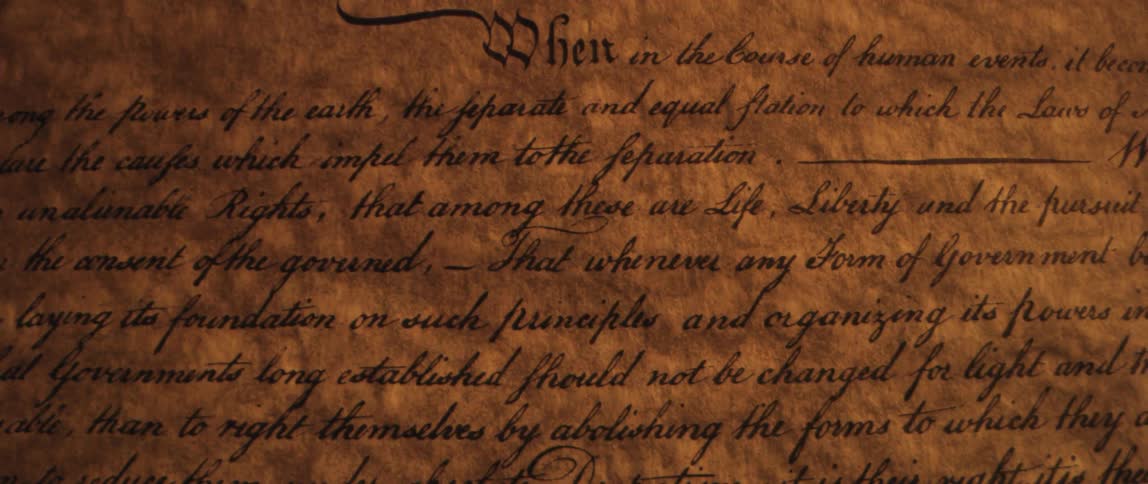 When in the Course of human events. it becom
ong the powers of the earth, the ſeparate and equal ſtation to which the Laws of
lare the cauſes which impel them to the ſeparation . ———— W
unalienable Rights, that among these are Life, Liberty and the pursuit
the consent of the governed, — That whenever any Form of Government be
laying its foundation on such principles and organizing its powers in
al Governments long established ſhould not be changed for light and
able, than to right themselves by abolishing the forms to which they
to reduce them under it is their right, it is